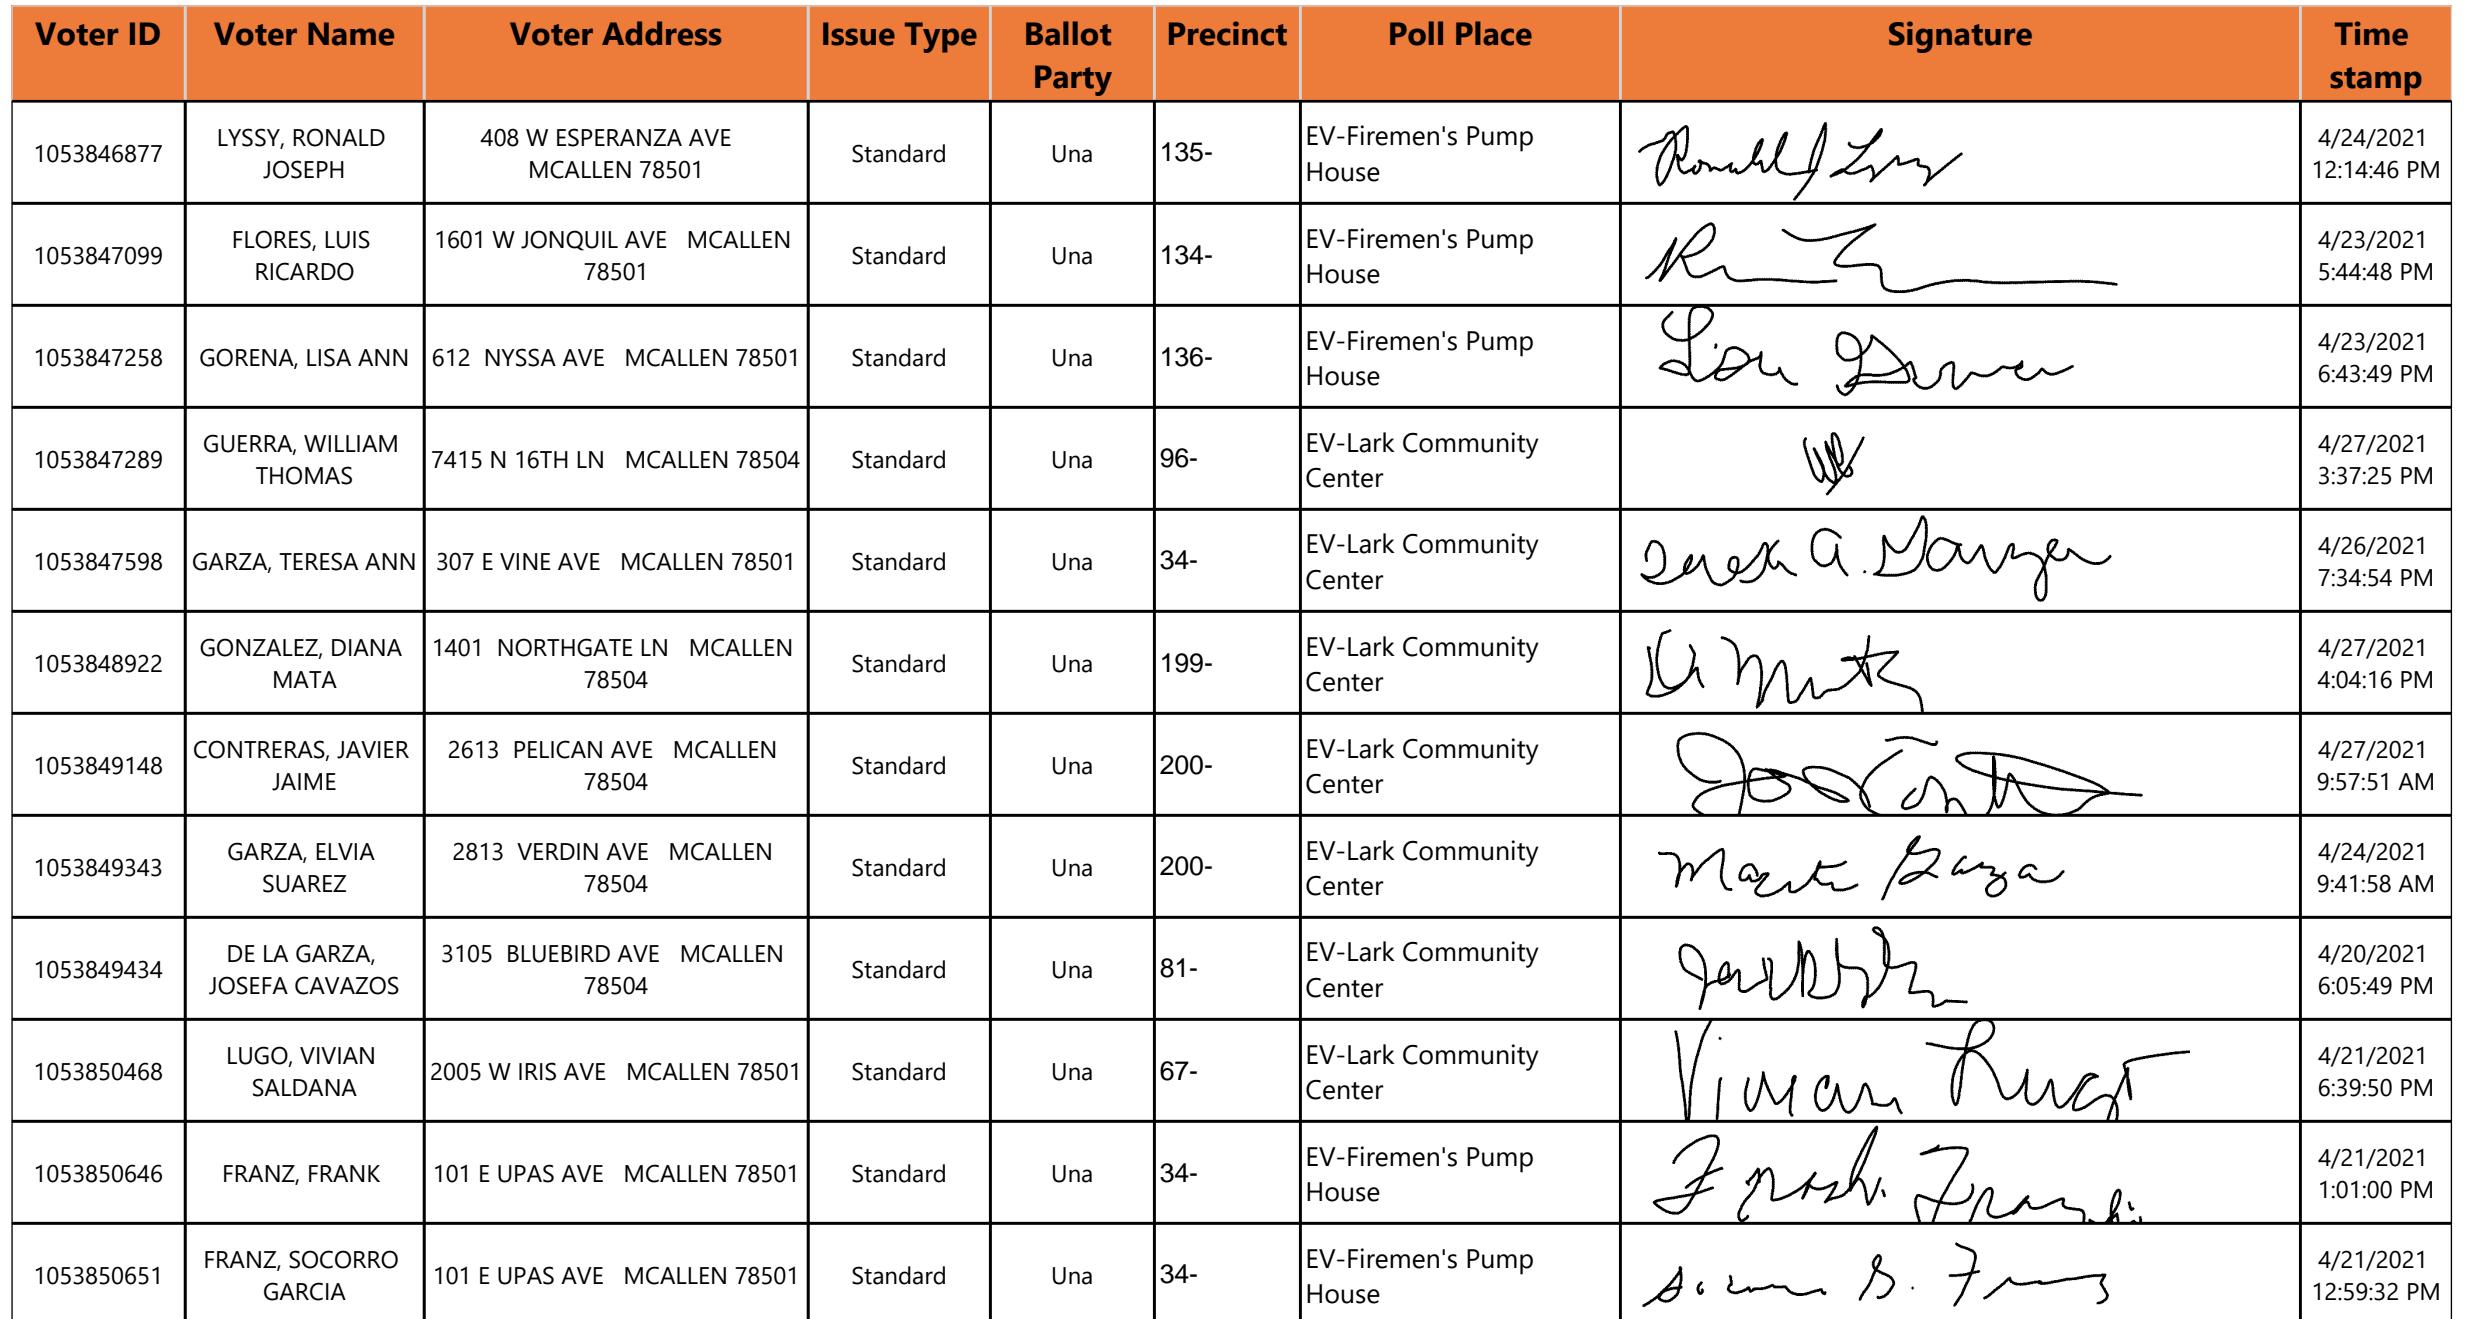 Voter ID Voter Name Voter Address Issue Type Ballot Party Precinct Poll Place Signature Time stamp
1053846877 LYSSY, RONALD JOSEPH 408 W ESPERANZA AVE MCALLEN 78501 Standard Una 135- EV-Firemen's Pump House Ronald J 4/24/2021 12:14:46 PM
1053847099 FLORES, LUIS RICARDO 1601 W JONQUIL AVE MCALLEN 78501 Standard Una 134- EV-Firemen's Pump House 4/23/2021 5:44:48 PM
1053847258 GORENA, LISA ANN 612 NYSSA AVE MCALLEN 78501 Standard Una 136- EV-Firemen's Pump House Lisa 4/23/2021 6:43:49 PM
1053847289 GUERRA, WILLIAM THOMAS 7415 N 16TH LN MCALLEN 78504 Standard Una 96- EV-Lark Community Center 4/27/2021 3:37:25 PM
1053847598 GARZA, TERESA ANN 307 E VINE AVE MCALLEN 78501 Standard Una 34- EV-Lark Community Center Teresa A. Garza 4/26/2021 7:34:54 PM
1053848922 GONZALEZ, DIANA MATA 1401 NORTHGATE LN MCALLEN 78504 Standard Una 199- EV-Lark Community Center 4/27/2021 4:04:16 PM
1053849148 CONTRERAS, JAVIER JAIME 2613 PELICAN AVE MCALLEN 78504 Standard Una 200- EV-Lark Community Center 4/27/2021 9:57:51 AM
1053849343 GARZA, ELVIA SUAREZ 2813 VERDIN AVE MCALLEN 78504 Standard Una 200- EV-Lark Community Center Garza 4/24/2021 9:41:58 AM
1053849434 DE LA GARZA, JOSEFA CAVAZOS 3105 BLUEBIRD AVE MCALLEN 78504 Standard Una 81- EV-Lark Community Center 4/20/2021 6:05:49 PM
1053850468 LUGO, VIVIAN SALDANA 2005 W IRIS AVE MCALLEN 78501 Standard Una 67- EV-Lark Community Center Vivian Lugo 4/21/2021 6:39:50 PM
1053850646 FRANZ, FRANK 101 E UPAS AVE MCALLEN 78501 Standard Una 34- EV-Firemen's Pump House Frank Franz 4/21/2021 1:01:00 PM
1053850651 FRANZ, SOCORRO GARCIA 101 E UPAS AVE MCALLEN 78501 Standard Una 34- EV-Firemen's Pump House G. Franz 4/21/2021 12:59:32 PM